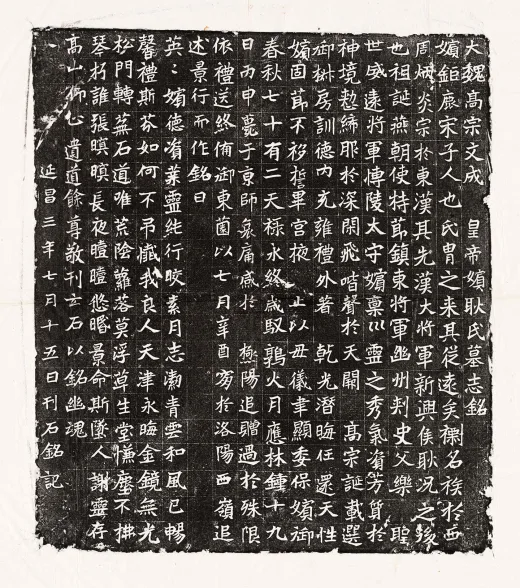 大魏高宗文成 皇帝嬪耿氏墓志銘
嬪鉅鹿宋子人也氏胄之来其從遠矣標名族於西
周炳炎宗於東漢其先漢大將軍新興侯耿況之後
也祖誕燕朝使特節鎮東將軍幽州判史父樂 聖
世威遠將軍博陵太守嬪禀巛靈之秀氣資芳質於
神境懃締邢於深閑飛喈聲於天閣 高宗誕載選
御椒房訓德内充雍禮外著 乾光潛晦任還天性
嬪固節不移誓畢宫夜 正以毋儀聿顯委保嬪御
春秋七十有二天禄永終歲馭鶉火月應林鍾十九
日丙申薨于京師龜痛感於 極陽追贈過於殊限
依禮送終侑御東薗以七月辛酉穸於洛陽西嶺追
述景行而作銘曰
英英嬪德資業靈純行皎素月志渤青雲和風已暢
馨禮斯芬如何不吊懺我良人天津永晦金鏡無光
松門轉蕪石道唯荒陰蘿落莫浮草生堂慊塵不拂
琴朽誰張暝暝長夜曀曀悠悠昬景命斯墜人謝靈存
高山仰心遺道餘尊敬刊玄石以銘幽魂
延昌三年七月十五日刊石銘記